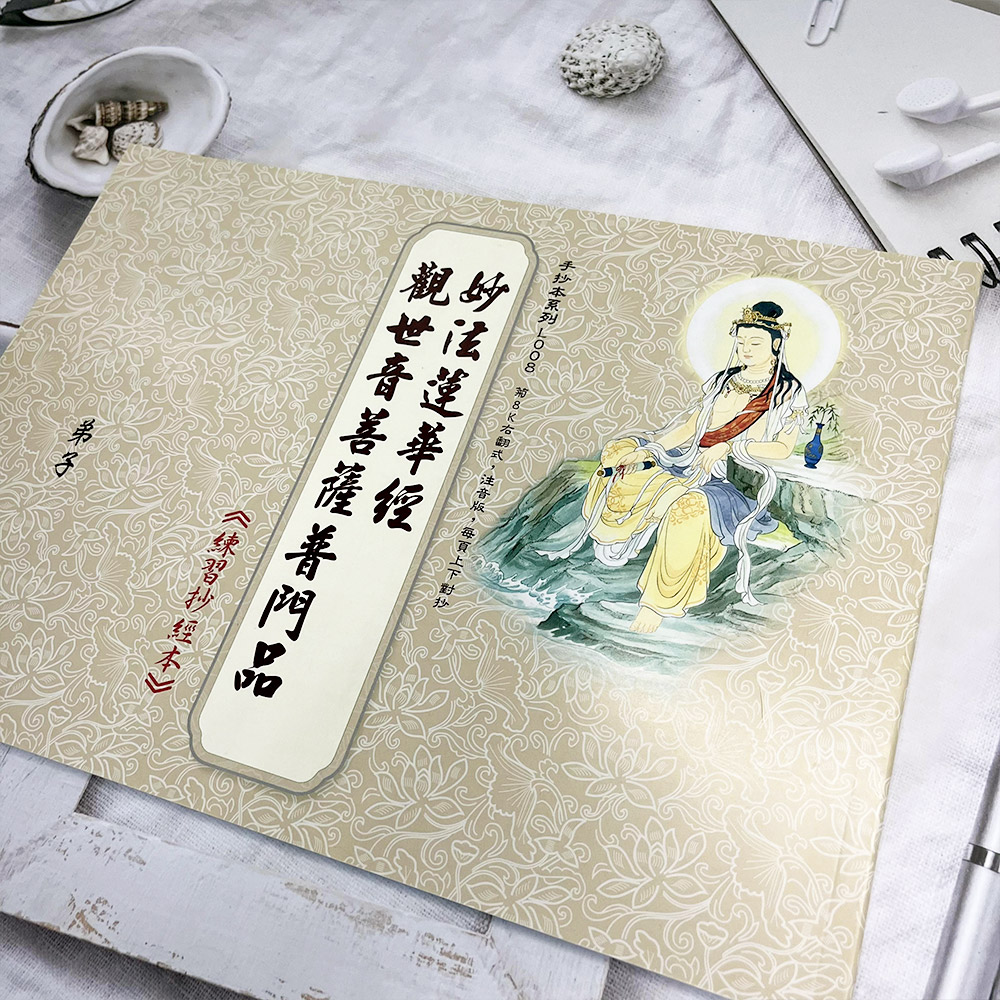 手抄本系列 L008 菊8K右翻式，注音版，每頁上下對抄
妙法蓮華經
觀世音菩薩普門品
《練習抄經本》
弟子